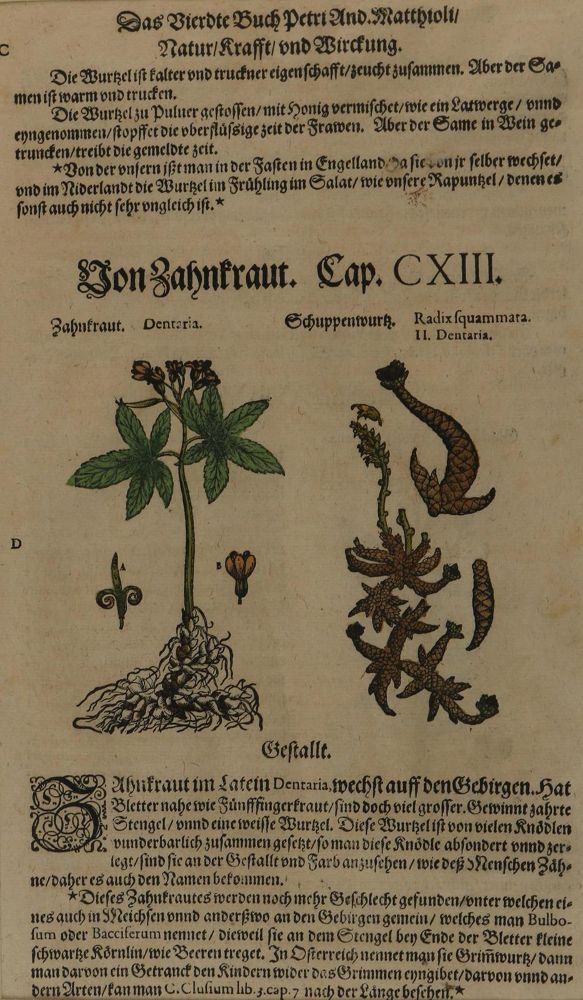 Das Vierdte Buch Petri And. Matthioli/
C
Natur/ Krafft/ vnd Wirckung.
Die Wurtzel ist kalter vnd truckner eigenschafft/ zeucht zusammen. Aber der Sa⸗
men ist warm vnd trucken.
Die Wurtzel zu Puluer gestossen/ mit Honig vermischet/ wie ein Latwerge/ vnnd
eyngenommen/ stopffet die vberflüssige zeit der Frawen. Aber der Same in Wein ge⸗
truncken/ treibt die gemeldte zeit.
*Von der vnsern jßt man in der Fasten in Engelland/ da sie von jr selber wechset/
vnd im Niderlandt die Wurtzel im Frühling im Salat/ wie vnsere Rapuntzel/ denen es
sonst auch nicht sehr vngleich ist.*
Von Zahnkraut. Cap. CXIII.
Zahnkraut. Dentaria. Schuppenwurtz. Radix squammata.
II. Dentaria.
D
A
B
Gestallt.
ZAhnkraut im Latein Dentaria, wechst auff den Gebirgen. Hat
Bletter nahe wie Fünfffingerkraut/ sind doch viel grosser. Gewinnt zahrte
Stengel/ vnnd eine weisse Wurtzel. Diese Wurtzel ist von vielen Knödlen
wunderbarlich zusammen gesetzt/ so man diese Knödle absondert vnnd zer⸗
legt/ sind sie an der Gestallt vnd Farb anzusehen/ wie deß Menschen Zäh⸗
ne/ daher es auch den Namen bekommen.
*Dieses Zahnkrautes werden noch mehr Geschlecht gefunden/ vnter welchen ei⸗
nes auch in Meichsen vnnd anderßwo an den Gebirgen gemein/ welches man Bulbo-
sum oder Bacciferum nennet/ dieweil sie an dem Stengel bey Ende der Bletter kleine
schwartze Körnlin/ wie Beeren treget. In Osterreich nennet man sie Grimmwurtz/ dann
man darvon ein Getranck den Kindern wider das Grimmen eyngibet/ darvon vnnd an⸗
dern Arten/ kan man C. Clusium lib. 3. cap. 7 nach der Länge besehen.*